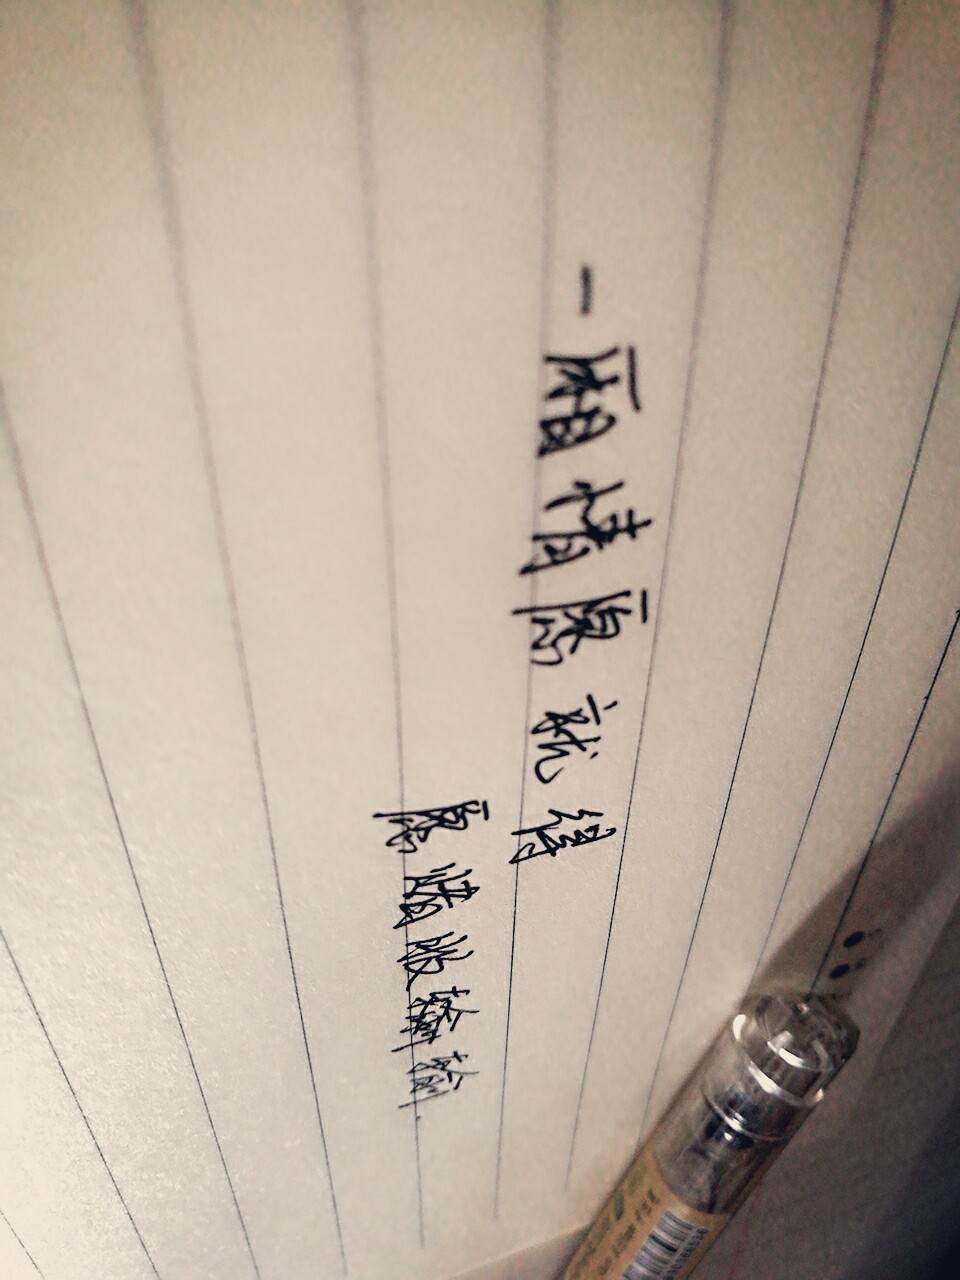 一厢情愿就得
愿赌服输